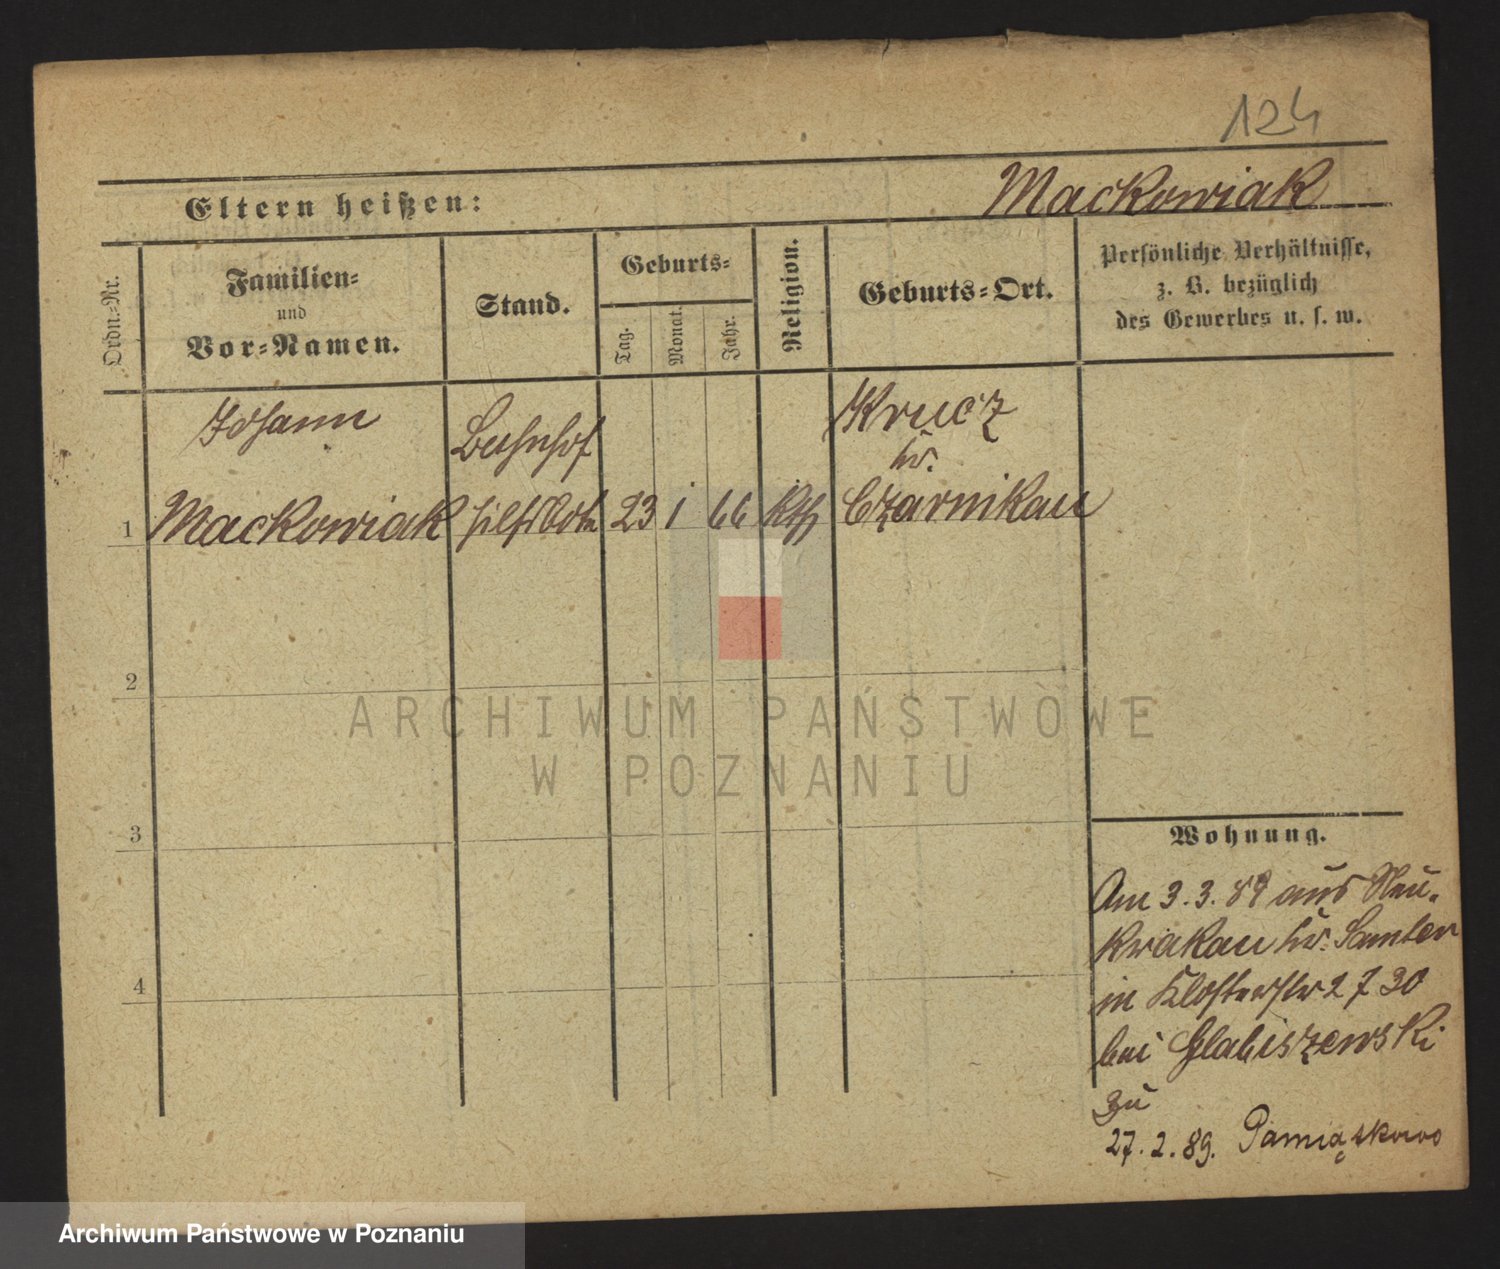 124
Eltern heißen:
Mackowiak
Ordn.-Nr.
Familien-
und
Vor-Namen.
Stand.
Geburts-
Tag.
Monat.
Jahr.
Religion.
Geburts-Ort.
Persönliche Verhältnisse,
z. B. bezüglich
des Gewerbes u. s. w.
Johann
Bahnhof
Krucz
kr.
1 Mackowiak hilfsbote 23 1 66 kth Czarnikau
2
3
4
ARCHIWUM PAŃSTWOWE
W POZNANIU
Wohnung.
Am 3.3.89 aus Neu-
krakau kr. Samter
in Klosterstr 27 30
bei Glabiszewski
zu
27.2.89. Pamiątkowo
Archiwum Państwowe w Poznaniu